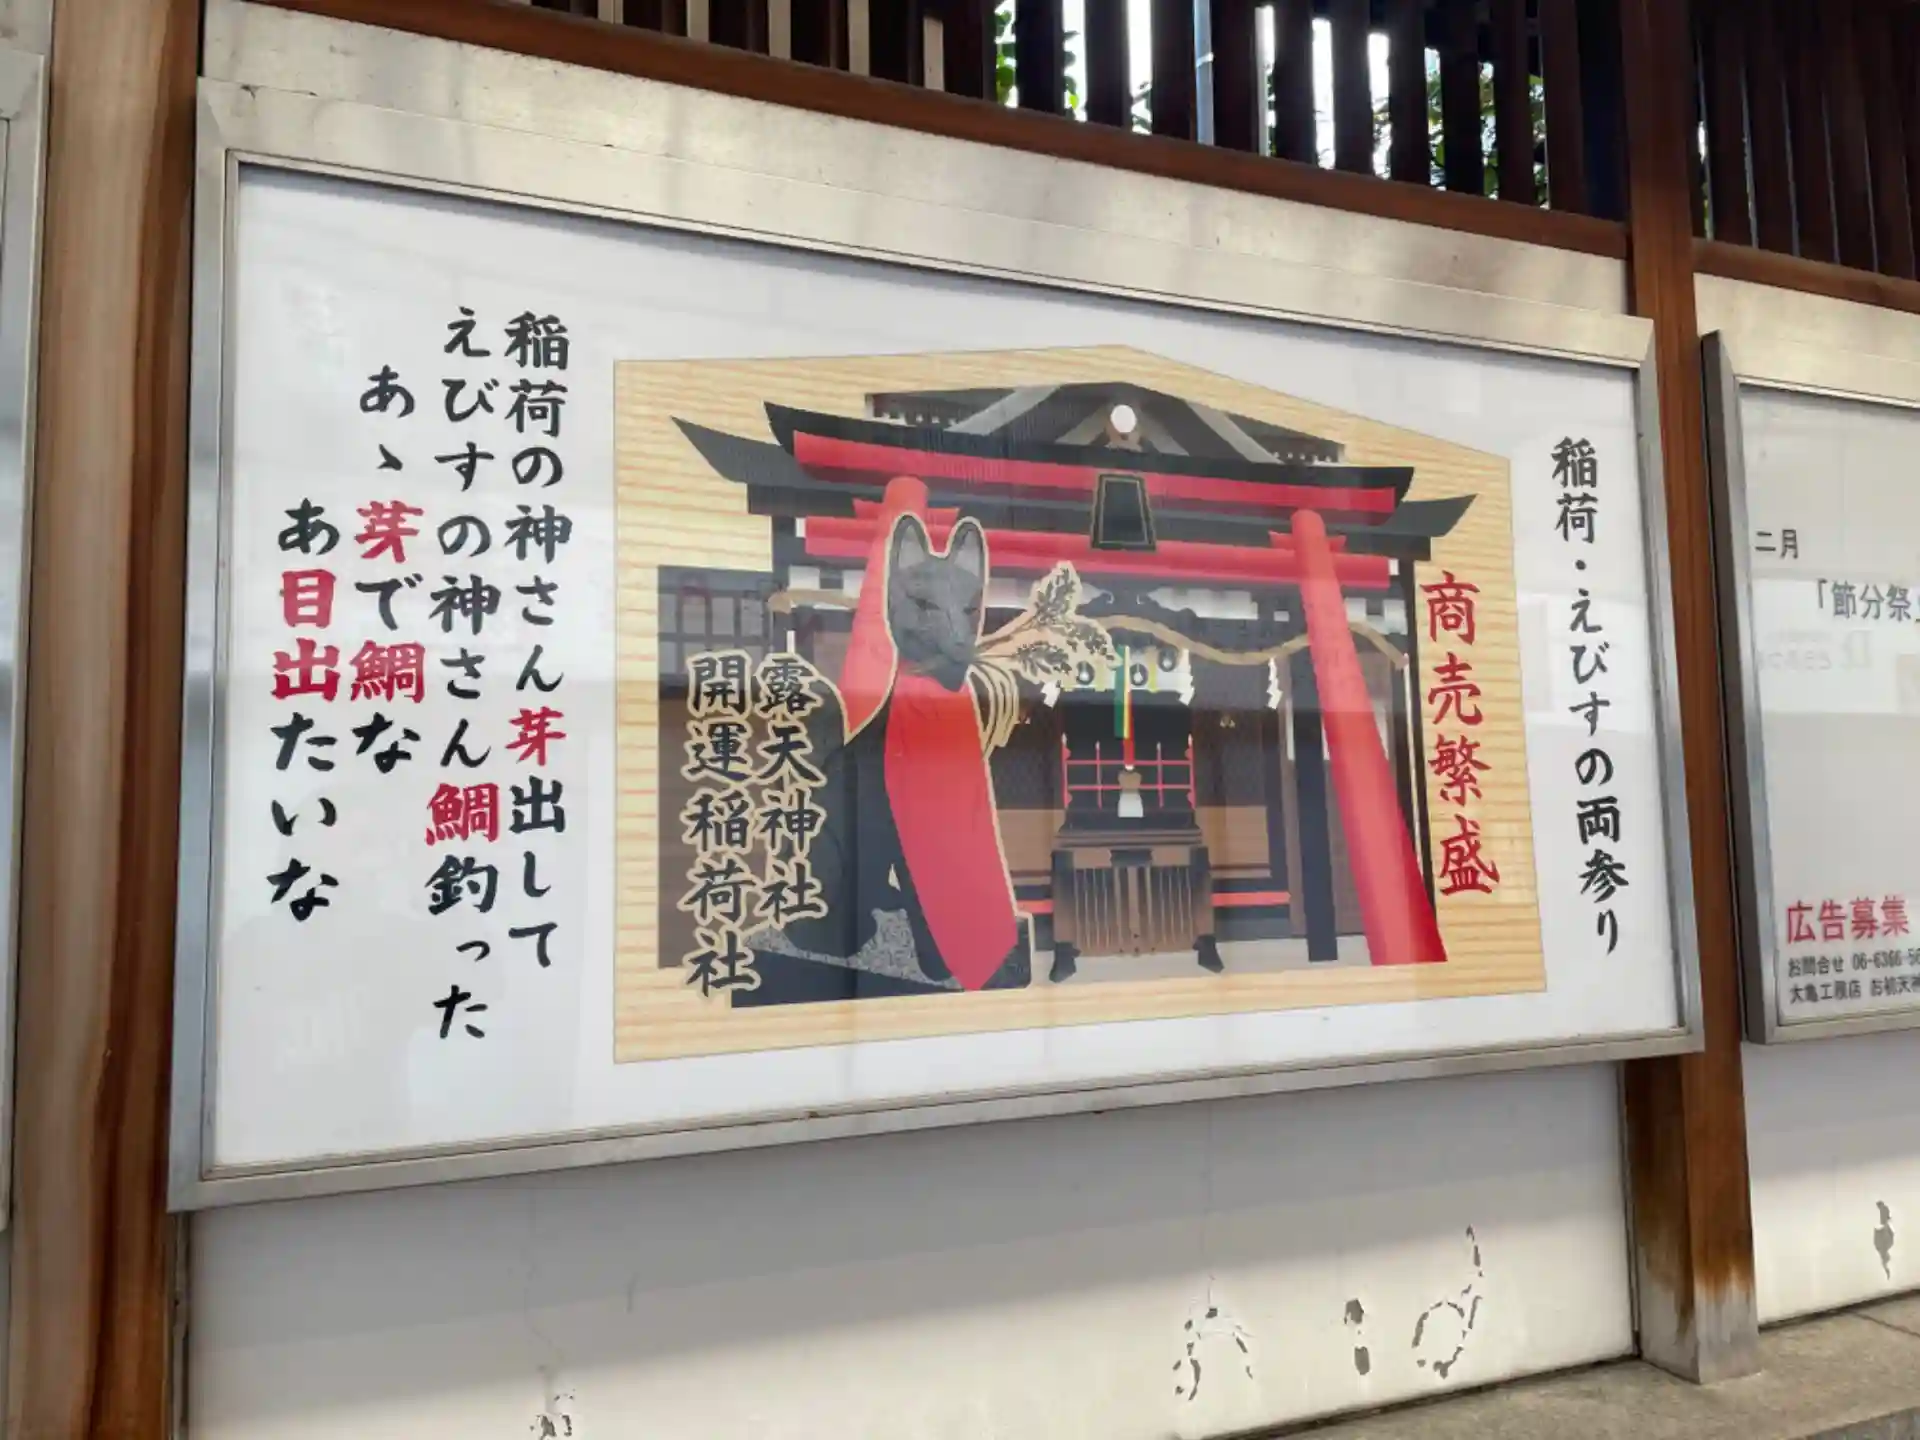 稲荷・えびすの両参り
商売繁盛
露天神社
開運稲荷社
稲荷の神さん芽出して
えびすの神さん鯛釣った
あゝ芽で鯛な
あ目出たいな
二月
「節分祭」
広告募集
お問合せ 06-6366-56
大亀工務店 お初天神